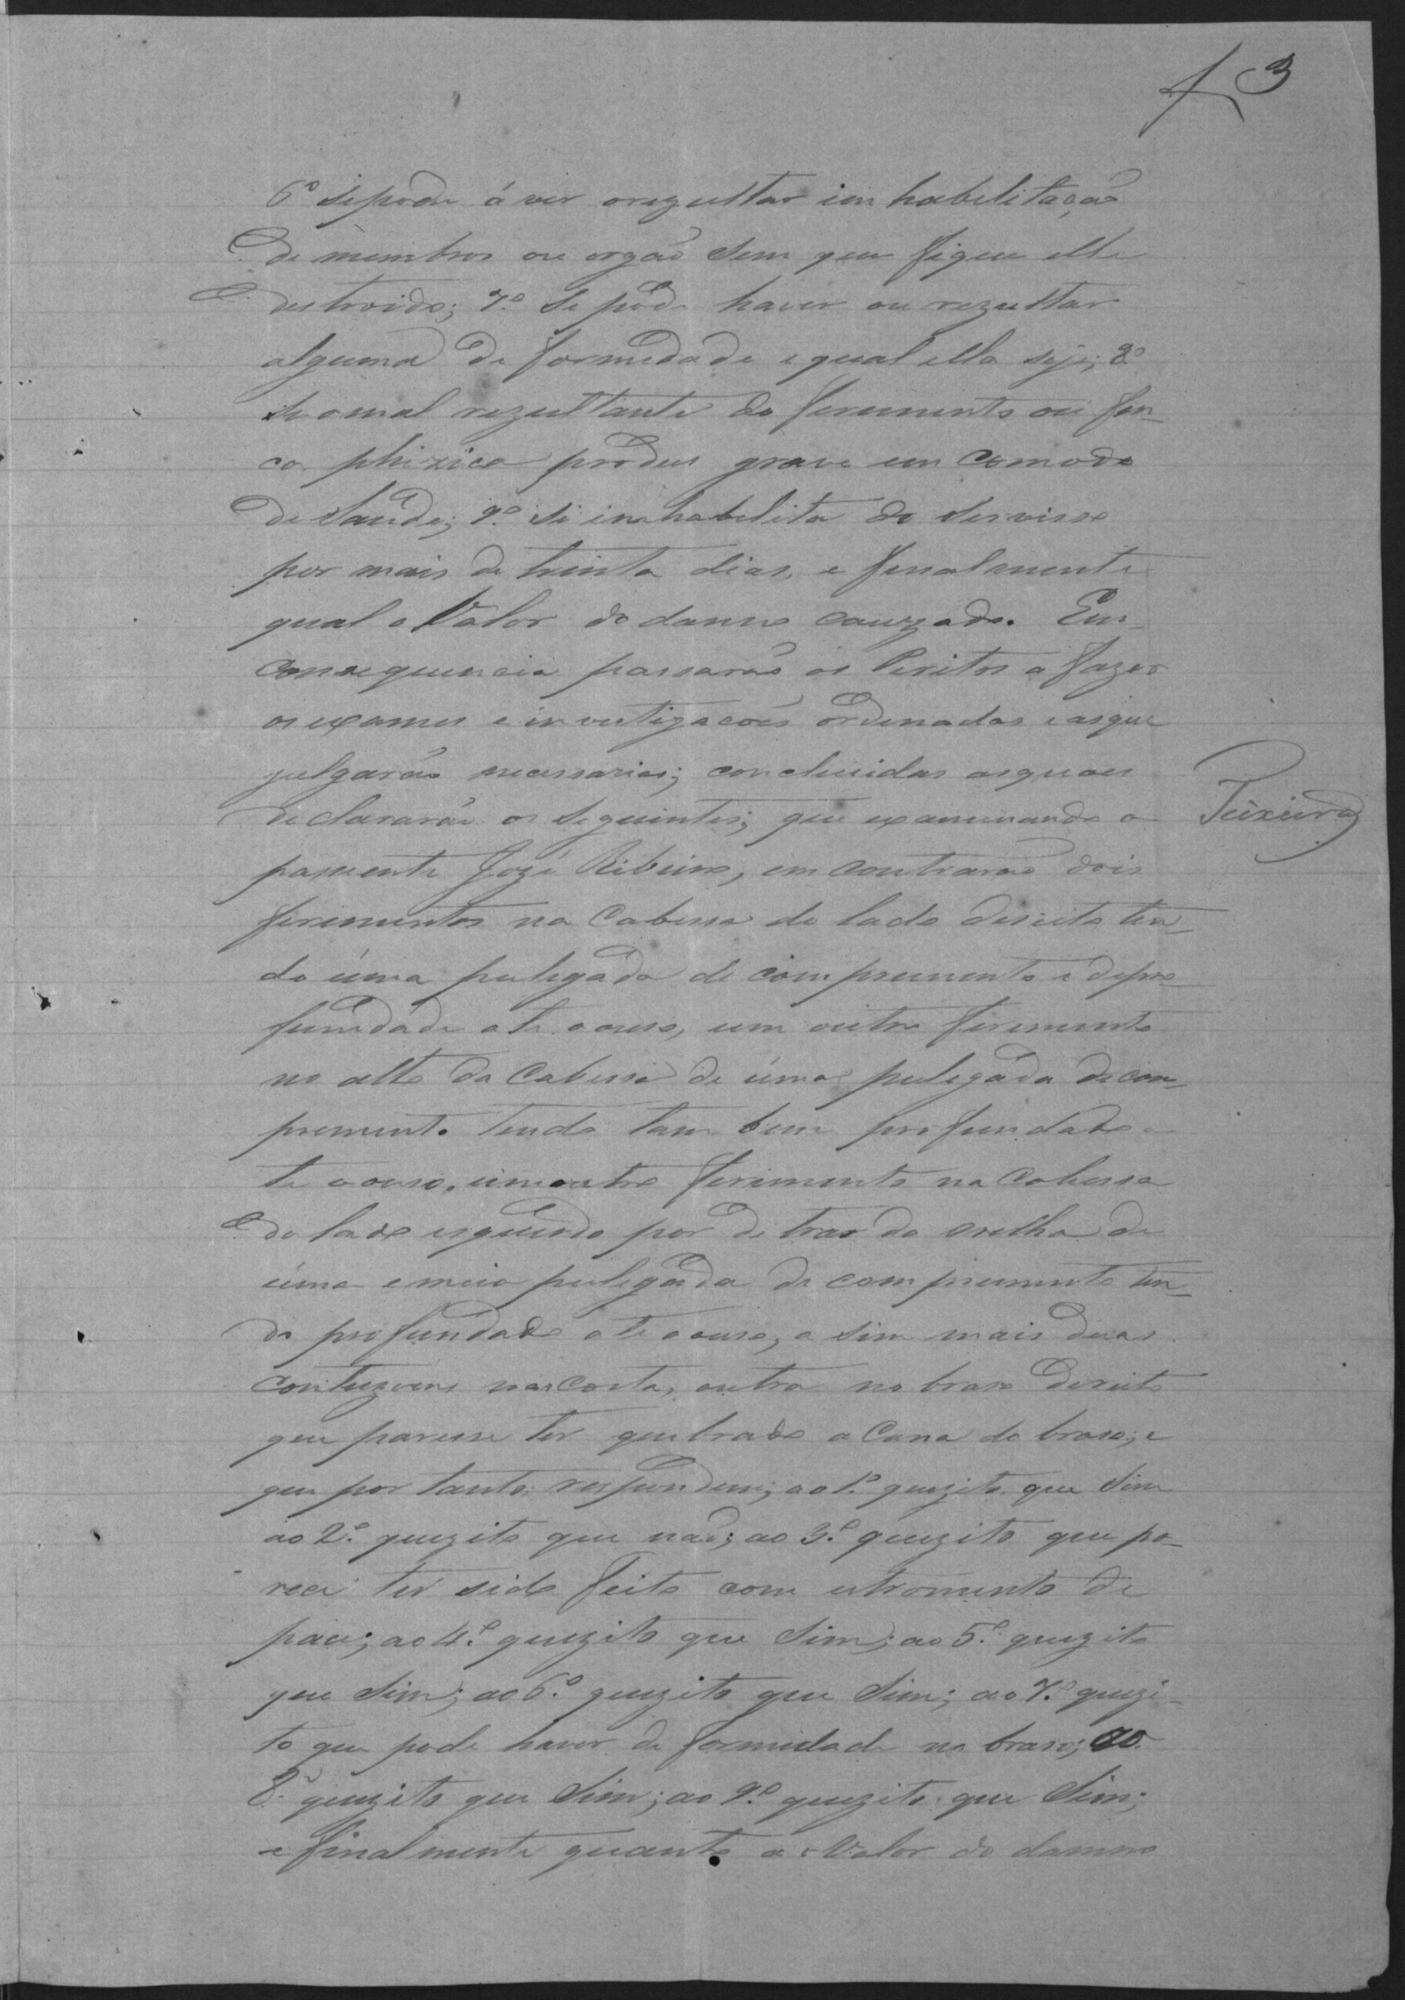 f 3
6º si pode á ver o rezultar im habelitação
de membros ou orgão sem que fique elle
destroido; 7º se pode haver ou rezultar
alguma de formedade e qual ella seje; 8º
si o mal rezultante do ferimento ou for-
ca phizica produs grave em comodo
de Saude; 9º si inhabelita do servisso
por mais de trinta dias, e finalmente
qual o Valor do danno cauzado. Em
consequencia passarão os Peritos a fazer
os exames e investigacões ordenadas e as que
julgarão necessarias; concluidas as quaes
declararão os seguintes; que examinando o
Teixeira
passiente Jozé Ribeiro, em contrarão dois
ferimentos na Cabessa do lado direito ten-
do úma pulegáda de comprimento e de pro
fundidade ate o ouso, um outro ferimento
no alto da Cabessa de úma pulegáda de com-
premento tendo tam bem profundade a
te o ouso, um outro ferimento na Cabessa
do lado esquerdo por de tras da orelha de
úma e meia pulegáda de compremento ten-
do profundade ate o ouso, a sim mais duas
contuzoens nas costa, outra no braso dereito
que paresse ter quebrado a Cana do braso; e
que por tanto respondem; ao 1º quezito que Sim
ao 2º quezito que não; ao 3º quezito que pa-
rece ter sido feito com estromento de
pau; ao 4º quezito que Sim; ao 5º quezito
que Sim; ao 6º quezito que Sim; ao 7º quezi-
to que pode haver de formidade no braso; ao
8º quezito que Sim; ao 9º quezito que Sim;
e finalmente quanto a o Valor do damno